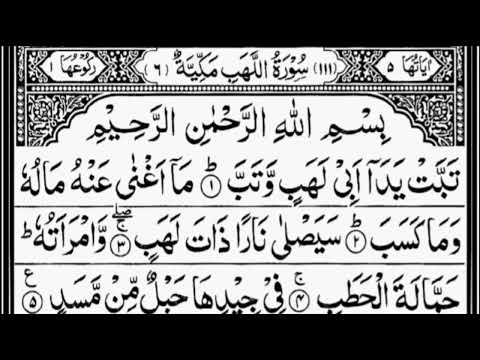 اٰیَاتُهَا ٥ (١١١) سُوْرَةُ اللَّهَبِ مَكِّیَّةٌ (٦) رُكُوْعُهَا ١
بِسْمِ اللهِ الرَّحْمٰنِ الرَّحِیْمِ
تَبَّتْ یَدَاۤ اَبِیْ لَهَبٍ وَّتَبَّ ؕ﴿۱﴾ مَاۤ اَغْنٰی عَنْهُ مَالُهٗ
وَمَا كَسَبَ ؕ﴿۲﴾ سَیَصْلٰی نَارًا ذَاتَ لَهَبٍ ۚۖ﴿۳﴾ وَّامْرَاَتُهٗ ؕ
حَمَّالَةَ الْحَطَبِ ۚ﴿۴﴾ فِیْ جِیْدِهَا حَبْلٌ مِّنْ مَّسَدٍ ﴿۵﴾ ع